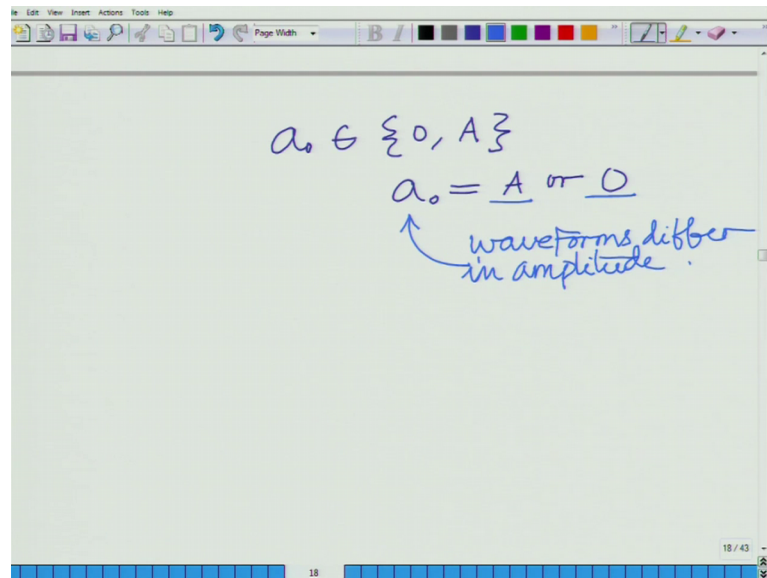 File Edit View Insert Actions Tools Help
Page Width B I
a₀ ∈ {0, A}
a₀ = A or 0
waveforms differ
in amplitude.
18 / 43
18